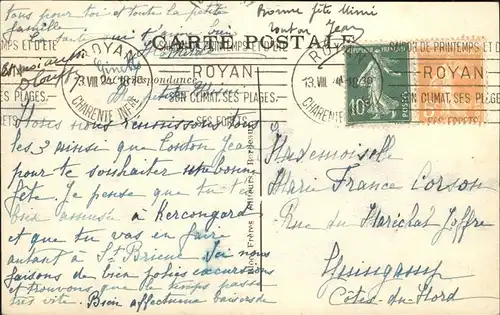 tous pour toi et toute la petite
famille
Bonne fête Mimi
tonton Jean
CARTE POSTALE
Correspondance
ROYAN
13.VIII
CHARENTE INFRE
ROYAN
SON CLIMAT. SES PLAGES.
SES FORETS
ROYAN
13.VIII
10-30
CHARENTE INFRE
SEJOUR DE PRINTEMPS ET D'ETE
ROYAN
SON CLIMAT. SES PLAGES.
SES FORETS
10c
POSTES
Ginette
Ma petite
Nous nous réunissons tous
les 3 ainsi que tonton Jean
pour te souhaiter une bonne
fête. Je pense que tu t'es
bien amusée à Kercongard
et que tu vas en faire
autant à St Brieuc. Ici nous
faisons de bien jolies excursions
et trouvons que le temps passe
très vite. Bien affectueux baisers de
Mademoiselle
Marie France Corson
Rue du Maréchal Joffre
Guingamp
Côtes-du-Nord